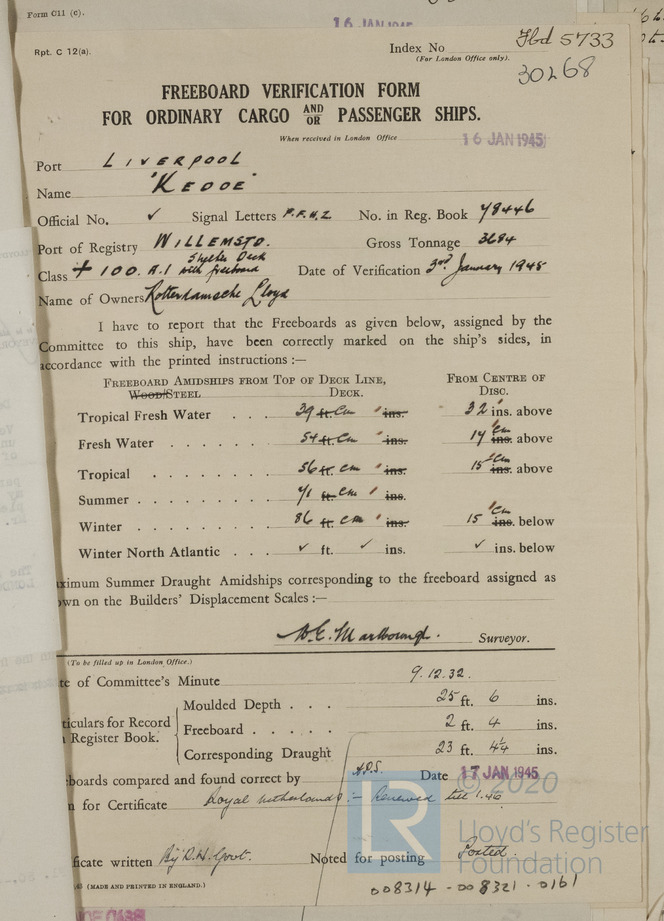 Form C11 (c).
16 JAN 1945
Rpt. C 12(a).
Index No Fbd 5733
(For London Office only).
30268
FREEBOARD VERIFICATION FORM
FOR ORDINARY CARGO AND/OR PASSENGER SHIPS.
When received in London Office 16 JAN 1945
Port LIVERPOOL
Name "KEDOE"
Official No. ✓ Signal Letters P.F.H.Z No. in Reg. Book 78446
Port of Registry WILLEMSTD. Gross Tonnage 3684
Shelter Deck
Class + 100. A.1 with freeboard Date of Verification 3rd January 1945
Name of Owners Rotterdamsche Lloyd
I have to report that the Freeboards as given below, assigned by the
Committee to this ship, have been correctly marked on the ship's sides, in
accordance with the printed instructions :—
FREEBOARD AMIDSHIPS FROM TOP OF DECK LINE, FROM CENTRE OF
WOOD/STEEL DECK. DISC.
Tropical Fresh Water . . . 39 ft. cm " ins. 32 ins. above
Fresh Water . . . . . . . 54 ft. cm " ins. 17 cm ins. above
Tropical . . . . . . . . 56 ft. cm " ins. 15 cm ins. above
Summer . . . . . . . . . 71 ft. cm " ins.
Winter . . . . . . . . . 86 ft. cm " ins. 15 cm ins. below
Winter North Atlantic . . . ✓ ft. ✓ ins. ✓ ins. below
ximum Summer Draught Amidships corresponding to the freeboard assigned as
own on the Builders' Displacement Scales :—
Marlborough. Surveyor.
(To be filled up in London Office.)
te of Committee's Minute 9.12.32.
Moulded Depth . . . 25 ft. 6 ins.
ticulars for Record
Register Book.
Freeboard . . . . . 2 ft. 4 ins.
Corresponding Draught 23 ft. 4¼ ins.
boards compared and found correct by A.D.S. Date 17 JAN 1945
n for Certificate Royal Netherlands :- Renewed till 1.46
ficate written By D.H. Govt. Noted for posting Posted.
(MADE AND PRINTED IN ENGLAND.)
008314-008321-0161
© 2020
LR
Lloyd's Register
Foundation